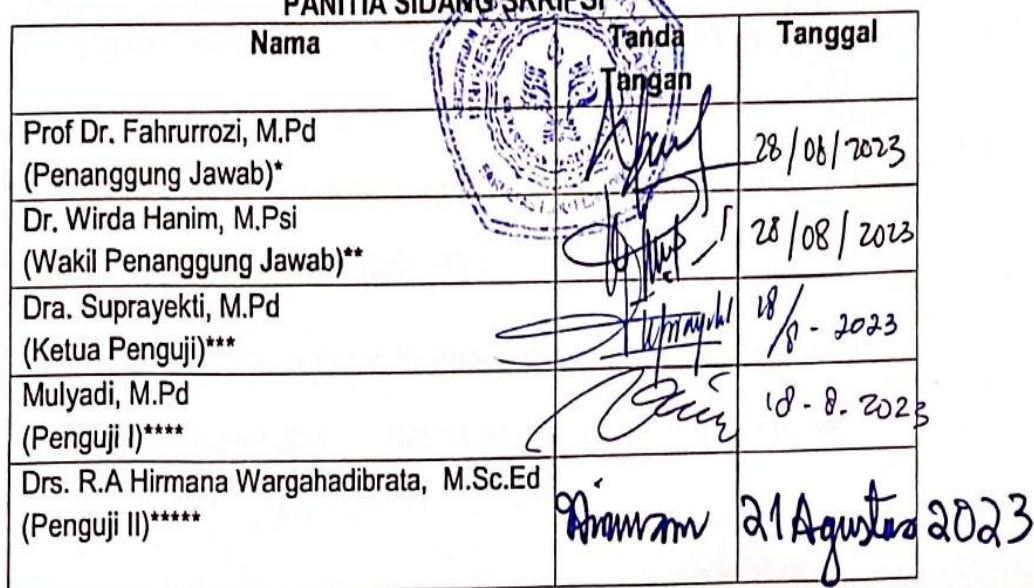 PANITIA SIDANG SKRIPSI
Nama
Tanda
Tangan
Tanggal
Prof Dr. Fahrurrozi, M.Pd
(Penanggung Jawab)*
28/08/2023
Dr. Wirda Hanim, M.Psi
(Wakil Penanggung Jawab)**
28/08/2023
Dra. Suprayekti, M.Pd
(Ketua Penguji)***
18/8-2023
Mulyadi, M.Pd
(Penguji I)****
18-8-2023
Drs. R.A Hirmana Wargahadibrata, M.Sc.Ed
(Penguji II)*****
21 Agustus 2023